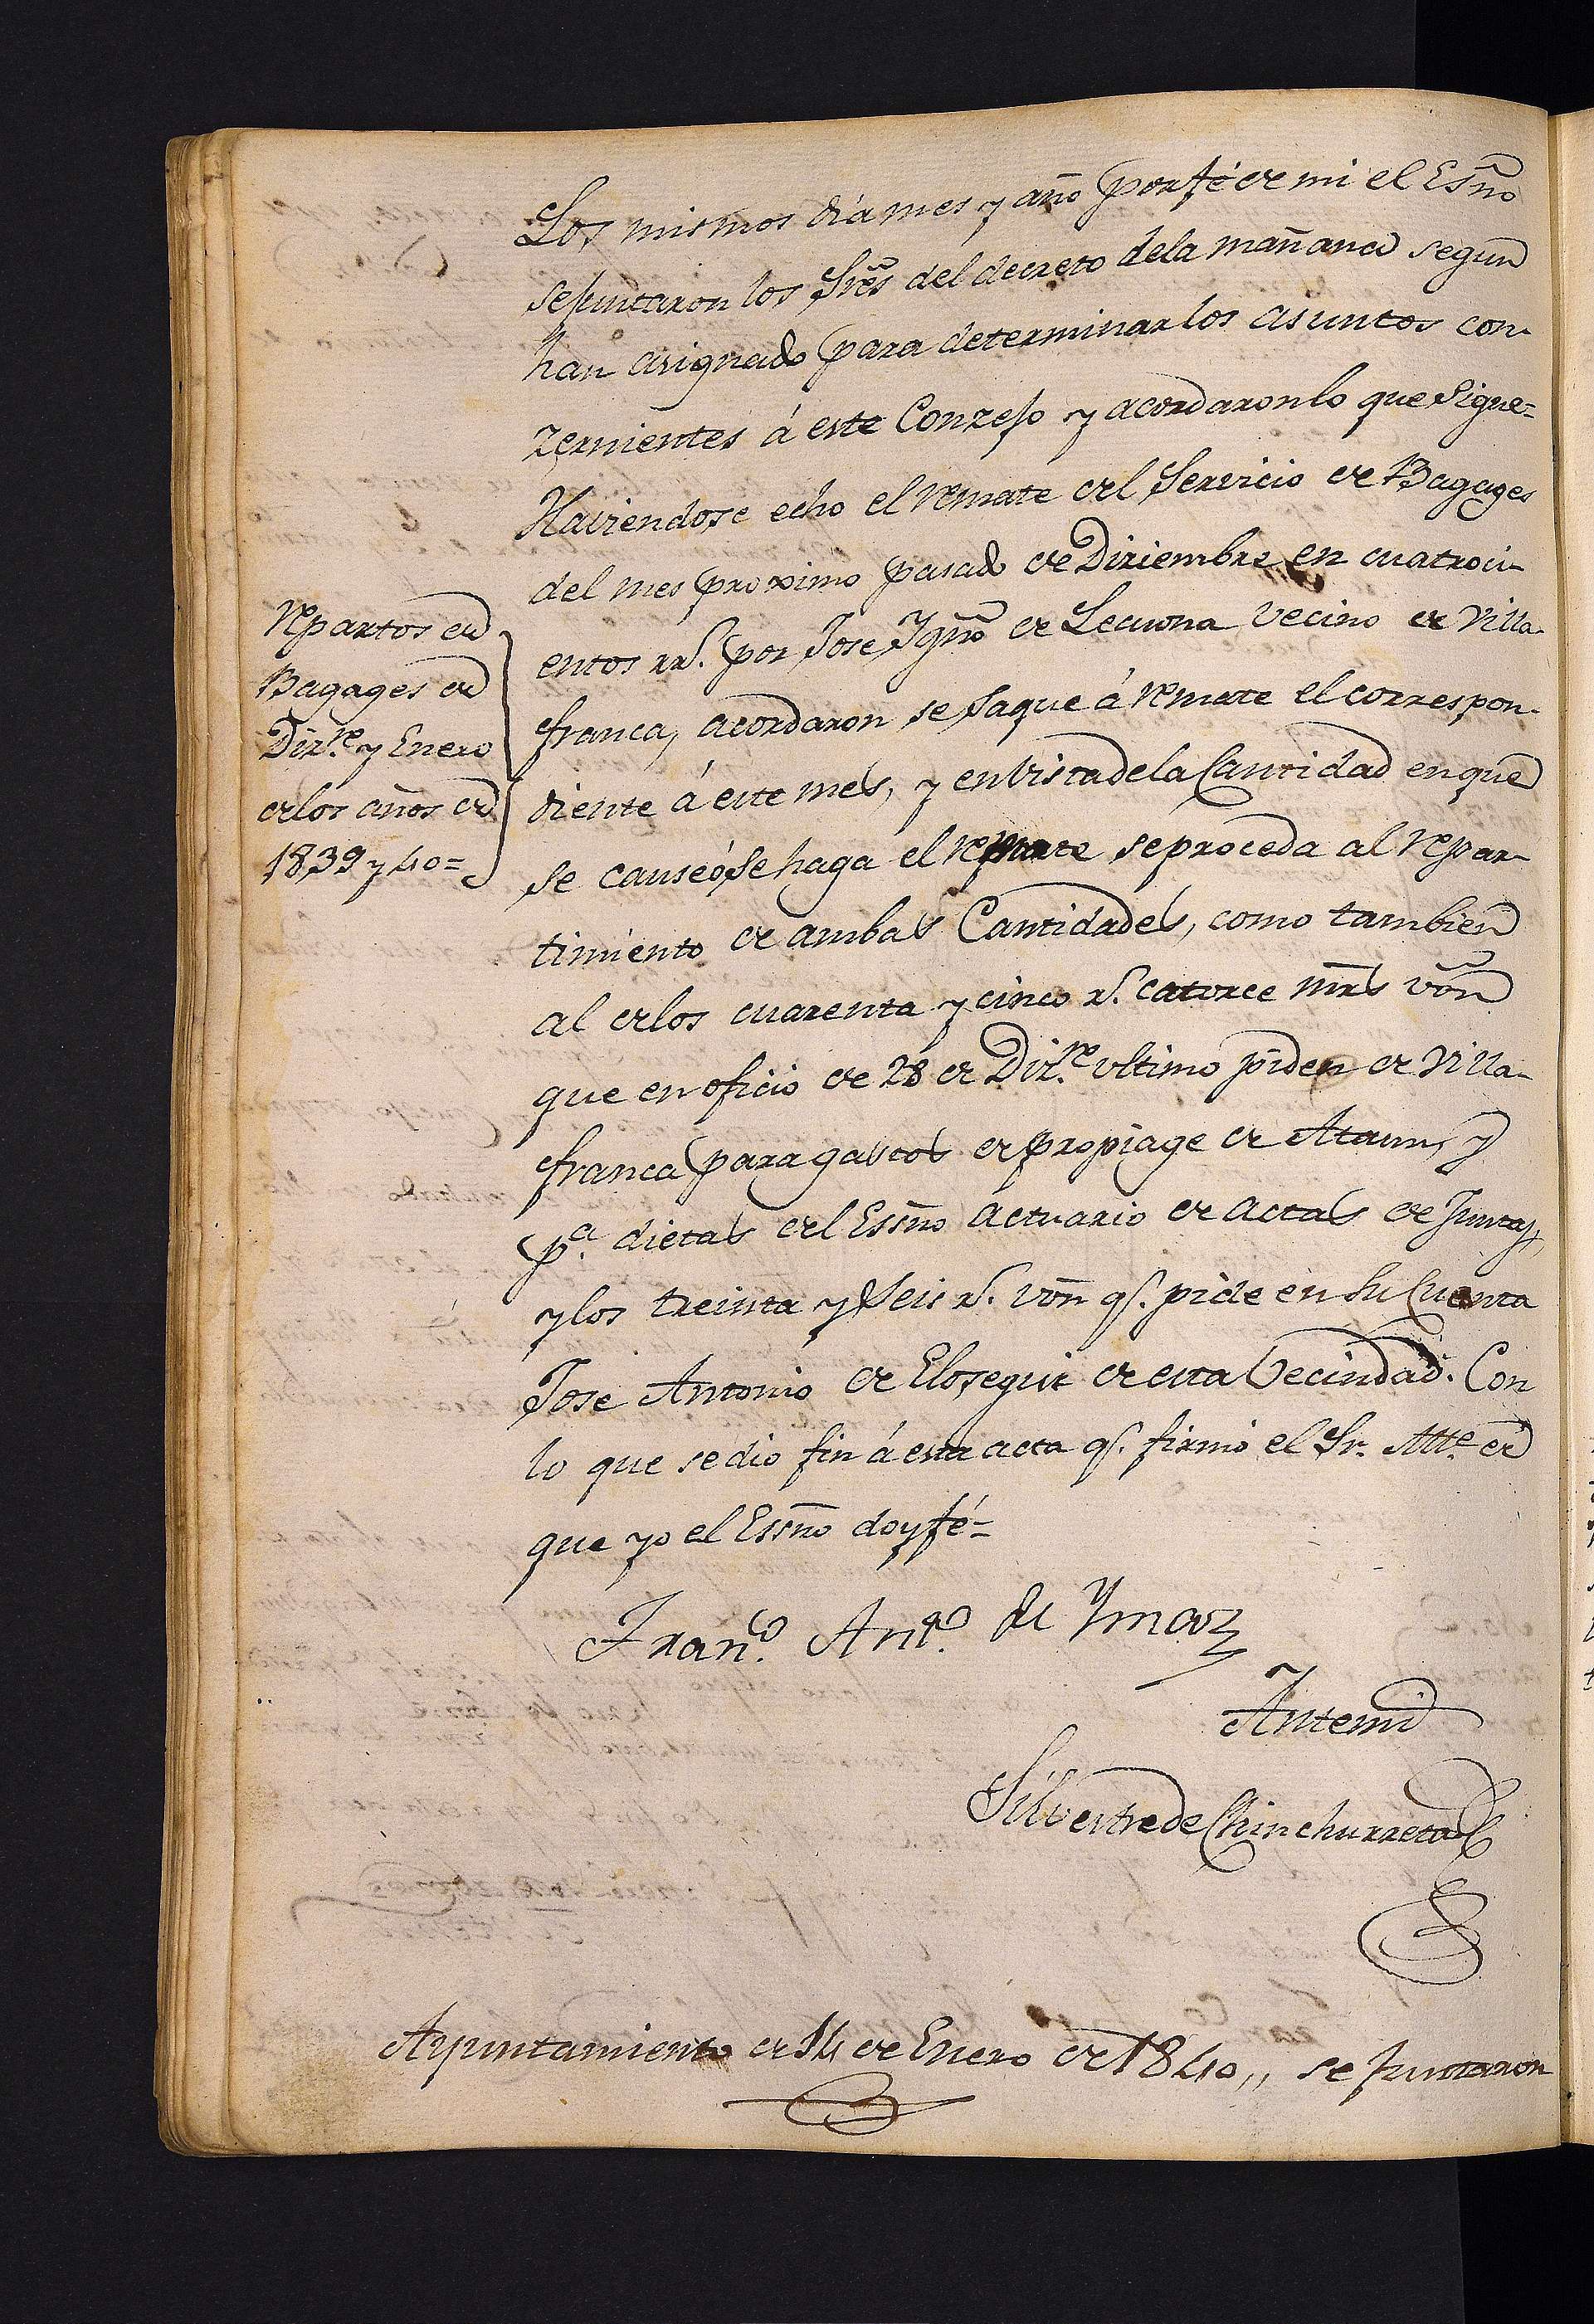 Los mismos dia mes y año por fé de mi el Esño
se juntaron los Sres del decreto dela mañana segun
han asignado para determinar los asuntos con-
zernientes á este Conzejo y acordaron lo que sigue=
Haviendose echo el remate del Servicio de Bagages
del mes proximo pasado de Diziembre en cuatroci-
entos rs. por Jose Ygño de Lecuona vecino de Villa-
franca, acordaron se saque á remate el correspon-
diente á este mes, y en vista dela Cantidad en que
se cause ó se haga el remate se proceda al repar-
timiento de ambas Cantidades, como tambien
al de los cuarenta y cinco rs. catorce mrs von
que en oficio de 28 de Diz.re ultimo piden de Villa-
franca para gastos de propiage de Ataun, y
p.a dietas del Esño actuario de actas de Juntas,
y los treinta y seis rs. von q.e pide en su Cuenta
Jose Antonio de Elosegui de esta Vecindad. Con
lo que se dio fin á esta acta q.e firmó el Sr. Alle. de
que yo el Esño doy fé=
Repartos de
Bagages de
Diz.re y Enero
de los años de
1839 y 40=
Fran.co Ant.o de Ymaz
Antemi
Silvestre de Chinchurreta
Ayuntamiento de 14 de Enero de 1840,, se juntaron